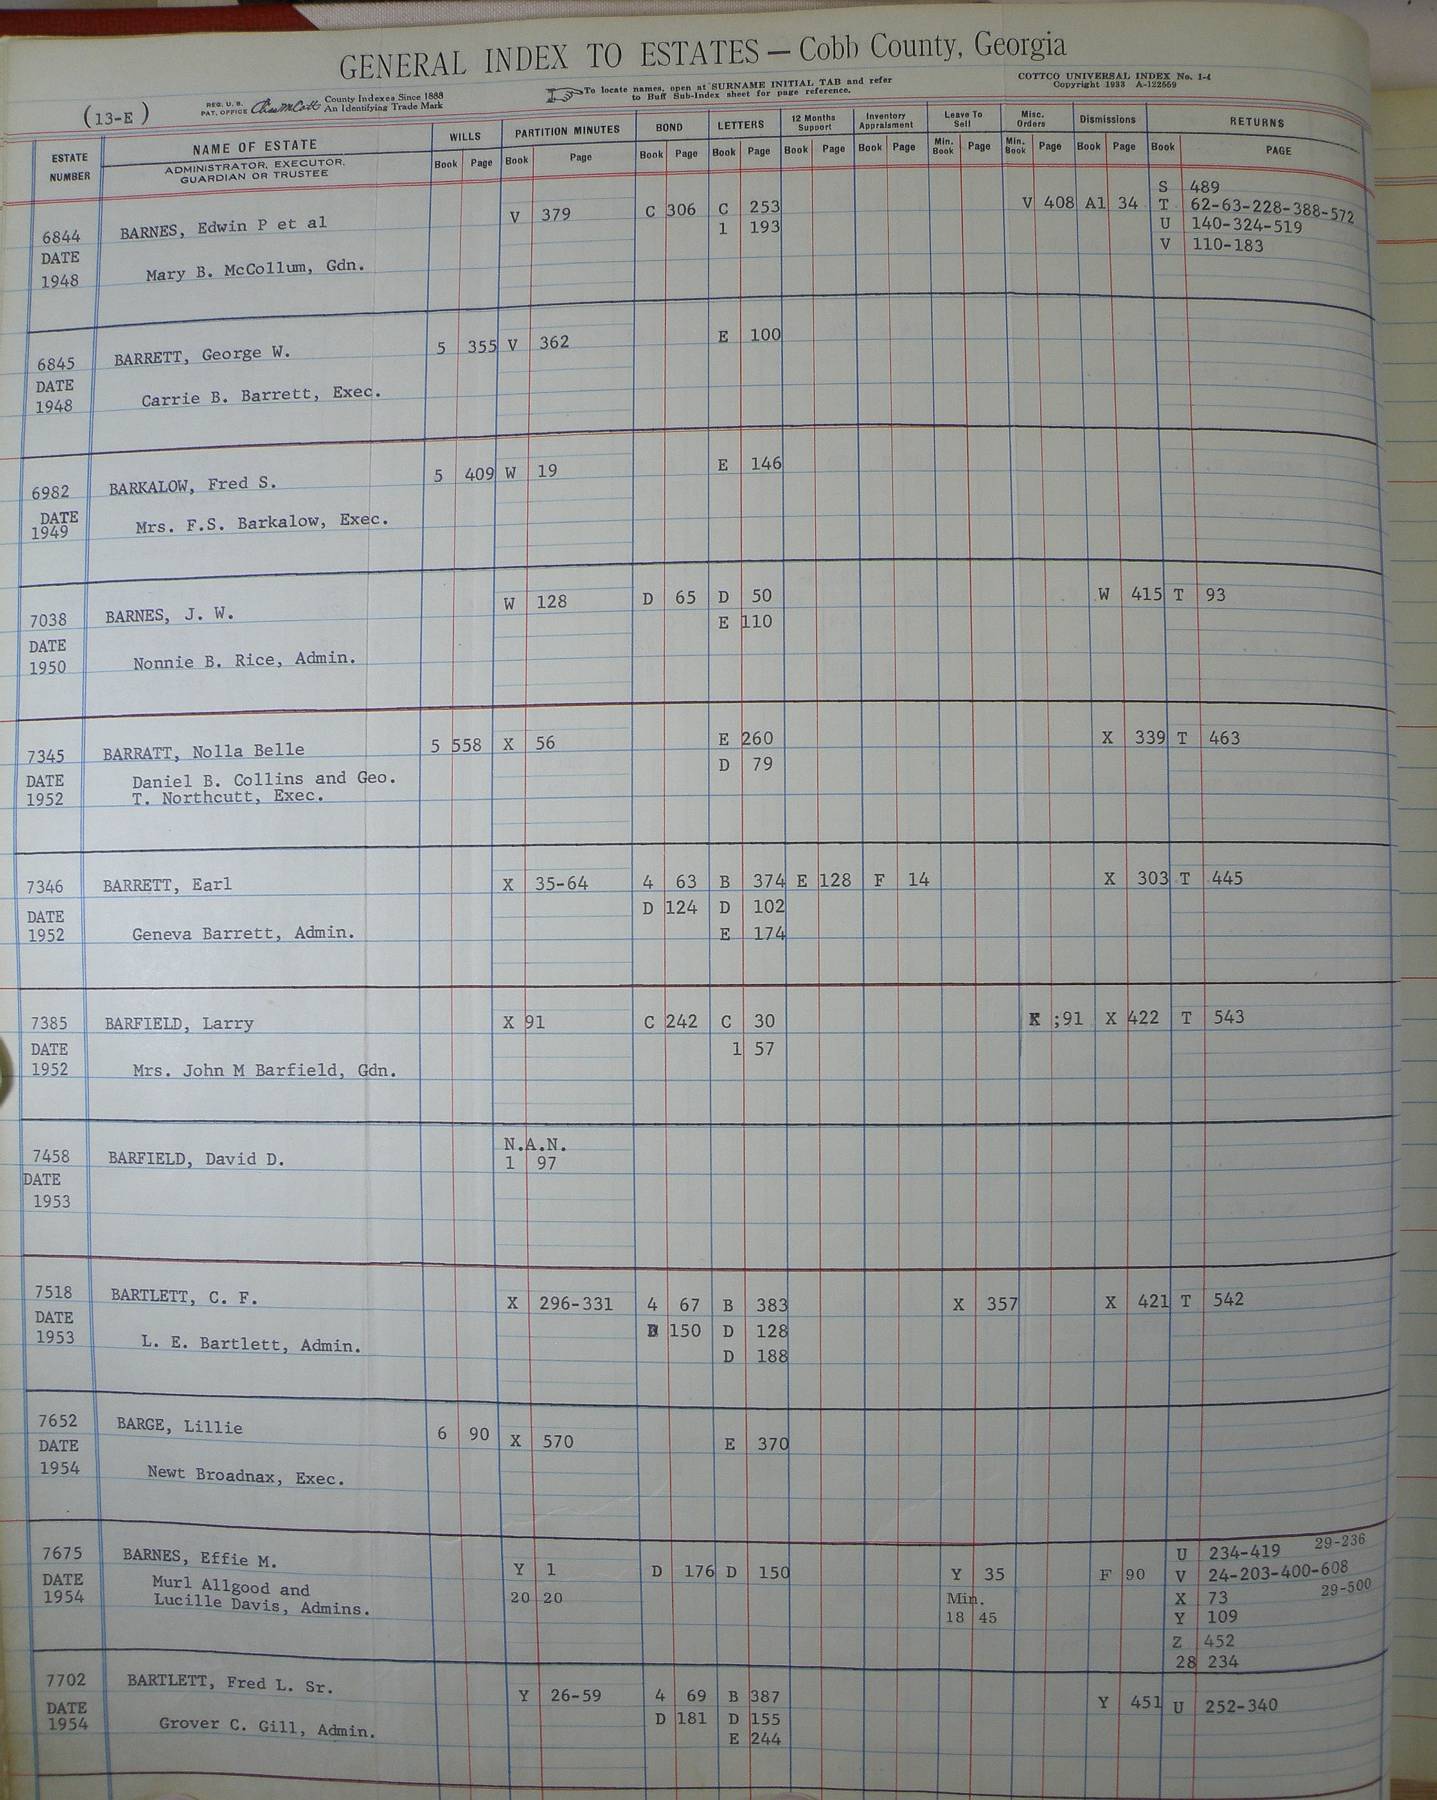 GENERAL INDEX TO ESTATES — Cobb County, Georgia
(13-E) REG. U. S. PAT. OFFICE County Indexes Since 1888 An Identifying Trade Mark To locate names, open at SURNAME INITIAL TAB and refer to Buff Sub-Index sheet for page reference. COTTCO UNIVERSAL INDEX No. 1-4 Copyright 1933 A-122559
ESTATE NUMBER NAME OF ESTATE WILLS PARTITION MINUTES BOND LETTERS 12 Months Support Inventory Appraisment Leave To Sell Misc. Orders Dismissions RETURNS
ADMINISTRATOR, EXECUTOR, GUARDIAN OR TRUSTEE Book Page Book Page Book Page Book Page Book Page Book Page Min. Book Page Min. Book Page Book Page Book PAGE
S 489
6844 BARNES, Edwin P et al V 379 C 306 C 253 V 408 A1 34 T 62-63-228-388-572
DATE 1 193 U 140-324-519
1948 Mary B. McCollum, Gdn. V 110-183
6845 BARRETT, George W. 5 355 V 362 E 100
DATE
1948 Carrie B. Barrett, Exec.
6982 BARKALOW, Fred S. 5 409 W 19 E 146
DATE
1949 Mrs. F.S. Barkalow, Exec.
7038 BARNES, J. W. W 128 D 65 D 50 W 415 T 93
DATE E 110
1950 Nonnie B. Rice, Admin.
7345 BARRATT, Nolla Belle 5 558 X 56 E 260 X 339 T 463
DATE Daniel B. Collins and Geo. D 79
1952 T. Northcutt, Exec.
7346 BARRETT, Earl X 35-64 4 63 B 374 E 128 F 14 X 303 T 445
DATE D 124 D 102
1952 Geneva Barrett, Admin. E 174
7385 BARFIELD, Larry X 91 C 242 C 30 ;91 X 422 T 543
DATE 1 57
1952 Mrs. John M Barfield, Gdn.
N.A.N.
7458 BARFIELD, David D. 1 97
DATE
1953
7518 BARTLETT, C. F. X 296-331 4 67 B 383 X 357 X 421 T 542
DATE 150 D 128
1953 L. E. Bartlett, Admin. D 188
7652 BARGE, Lillie 6 90 X 570 E 370
DATE
1954 Newt Broadnax, Exec.
7675 BARNES, Effie M. Y 1 D 176 D 150 Y 35 F 90 U 234-419 29-236
DATE Murl Allgood and 20 20 Min. V 24-203-400-608
1954 Lucille Davis, Admins. 18 45 X 73 29-500
Y 109
Z 452
28 234
7702 BARTLETT, Fred L. Sr. Y 26-59 4 69 B 387 Y 451 U 252-340
DATE D 181 D 155
1954 Grover C. Gill, Admin. E 244